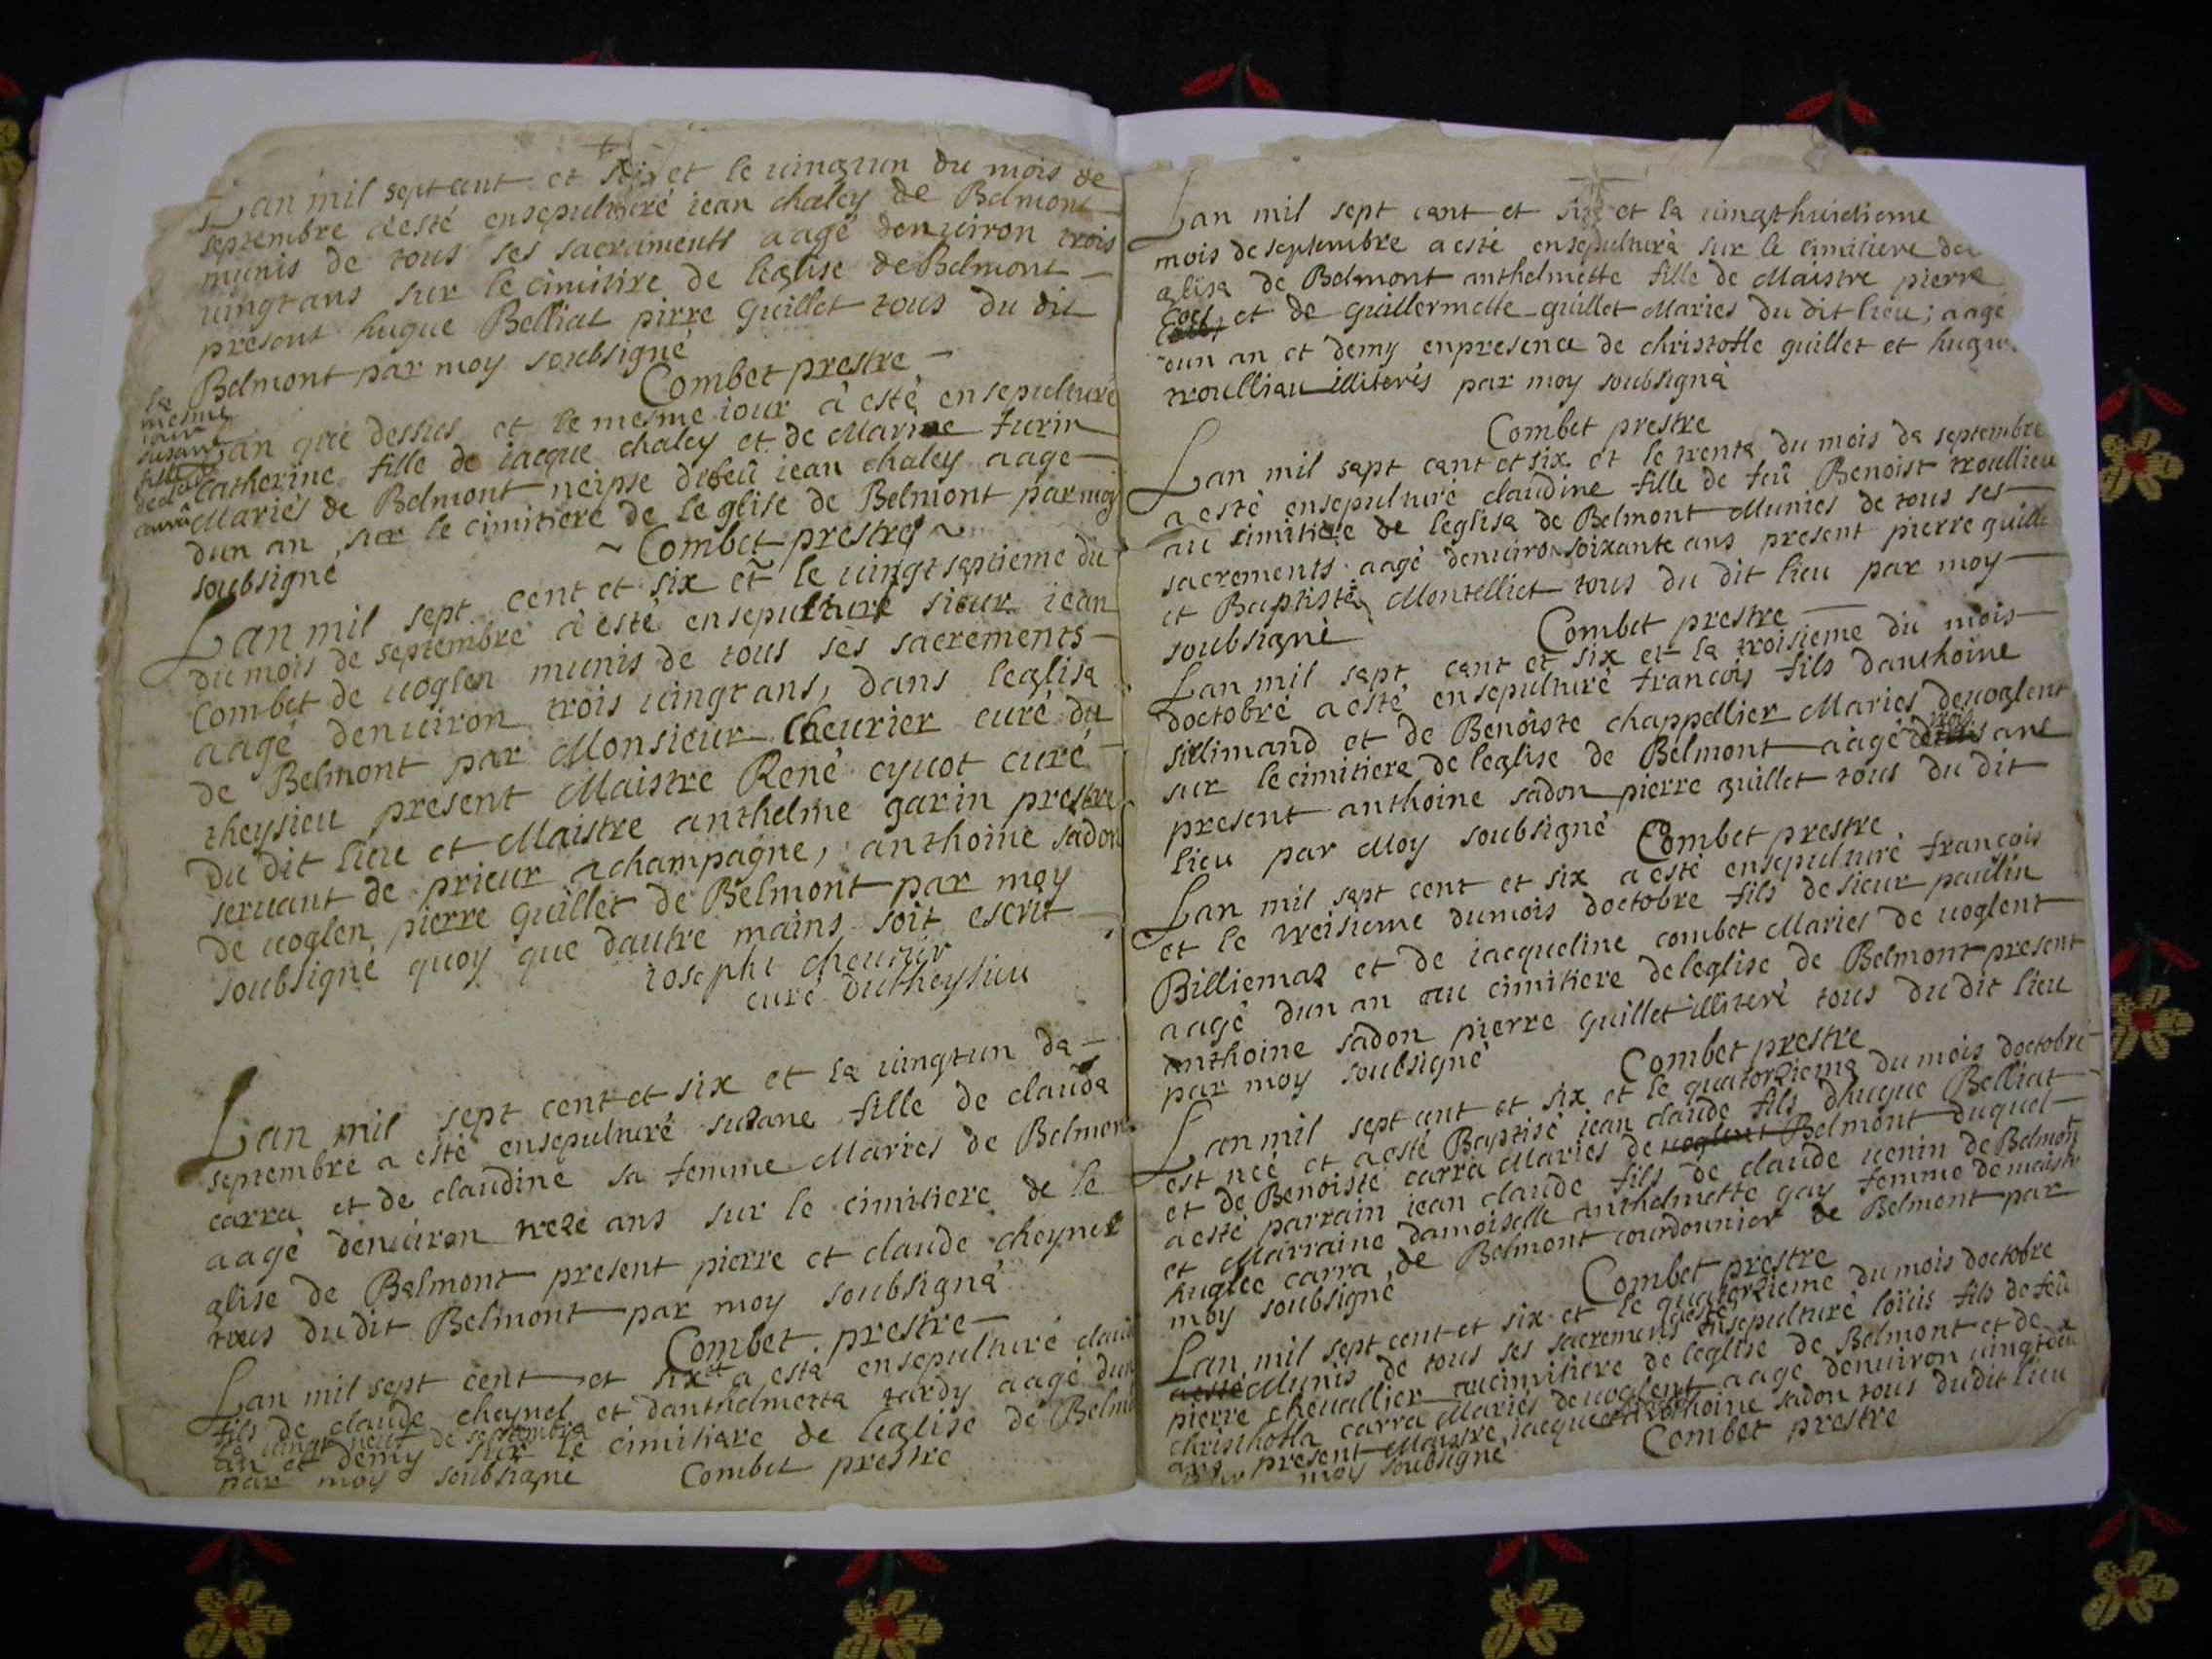 Lan mil sept cent et six et le vingt un du mois de
septembre a esté ensepulturé iean chaley de Belmont
munis de tous ses sacraments aagé denuiron trois
uingt ans sur le cimitire de leglise de Belmont
présent hugue Belliat pirre Guillet tous du dit
Belmont par moy soubsigné
Combet prestre
la
mesme
iour
susane
fille de
carra
Lan que dessus et le mesme iour à esté ensepulturé
Catherine fille de iacque chaley et de Marine Turin
Mariés de Belmont neipse defeû iean chaley aage
dun an sur le cimitiere de leglise de Belmont par moy
soubsigné
Combet prestre
Lan mil sept cent et six et le uingt septieme du
du mois de septembre à esté ensepulturé sieur iean
Combet de uoglen munis de tous ses sacrements
aagé denuiron trois uingt ans, dans leglisa
de Belmont par Monsieur Cheurier curé du
theysieu present Maistre René cyuot curé
du dit lieu et Maistre anthelme garin prestre
seruant de prieur a champagne, anthoine sadon
de uoglen pierre Guillet de Belmont par moy
soubsigné quoy que dautre mains soit escrit
Iosepht cheurier
curé dutheysieu
Lan mil sept cent et six et la uingt un da
septembre a esté ensepulturé suzane fille de clauda
carra et de claudine sa femme Mariés de Belmon
aagé denuiron treze ans sur le cimitiere de le
glise de Belmont present pierre et claude cheynel
tous dudit Belmont par moy soubsigna
Combet prestre
Lan mil sept cent et six et a esta ensepulturé clau
fils de claude cheynel et danthelmetta tardy aagé dun
la uingt neuf de septembra
an et demy sur le cimitiare de leglise de Belmo
par moy soubsigné Combet prestre
Lan mil sept cant et six et la uingt huictieme
mois de septembre a esté ensepulturà sur le cimitiere de
glisa de Belmont anthelmette fille de Maistre pierre
Goes et de Guillermette guillet Mariés du dit lieu; aagé
dun an et demy en presence de christofle guillet et hugue
troulliau illiterés par moy soubsignà
Combet prestre
Lan mil sapt cant et six et le trenta du mois da septembre
a esté ensepulturé claudine fille de feû Benoist troullieu
au simitiere de leglisa de Belmont Munies de tous ses
sacrements aagé denuiron soixante ans present pierre guille
et Baptiste Montelliet tous du dit lieu par moy
soubsigné
Combet prestre
Lan mil sapt cant et six et la troisieme du mois
doctobré a esté ensepulturé francois fils danthoine
sillimand et de Benoiste chappellier Mariés de uoglent
sur le cimitiera de leglise de Belmont aagé de trois ans
present anthoine sadon pierre guillet tous du dit
lieu par Moy soubsigné Combet prestre
Lan mil sept cent et six a esté ensepulturé françois
et le treisieme dumois doctobre fils de sieur paulin
Billiemaz et de iacqueline combet Mariés de uoglent
aagé dun an au cimitiere deleglise de Belmont present
anthoine sadon pierre guillet illiteré tous du dit lieu
par moy soubsigné
Combet prestre
Lan mil sept cent et six et le quatorziema du mois doctobre
est neé et a esté Baptisé iean claude fils dhugue Belliat
et de Benoiste carra Mariés de uoglent Belmont duquel
a esté parrain iean claude fils de claude uenin de Belmon
et Marraine damoiselle anthelmette gay femme de maistr
huglee carra de Belmont courdounnier de Belmont par
moy soubsigné
Combet prestre
Lan mil sept cent et six et le quatorzieme du mois doctobre
a esté Munis de tous ses sacremens a esté ensepulturé loüis fils de feû
pierre cheuallier au cimitiere de leglise de Belmont et de
christhofla carra Mariés de uoglent aage denuiron uingt deux
ans present Maistre iacque anthoine sadon tous dudit lieu
par moy soubsigné
Combet prestre